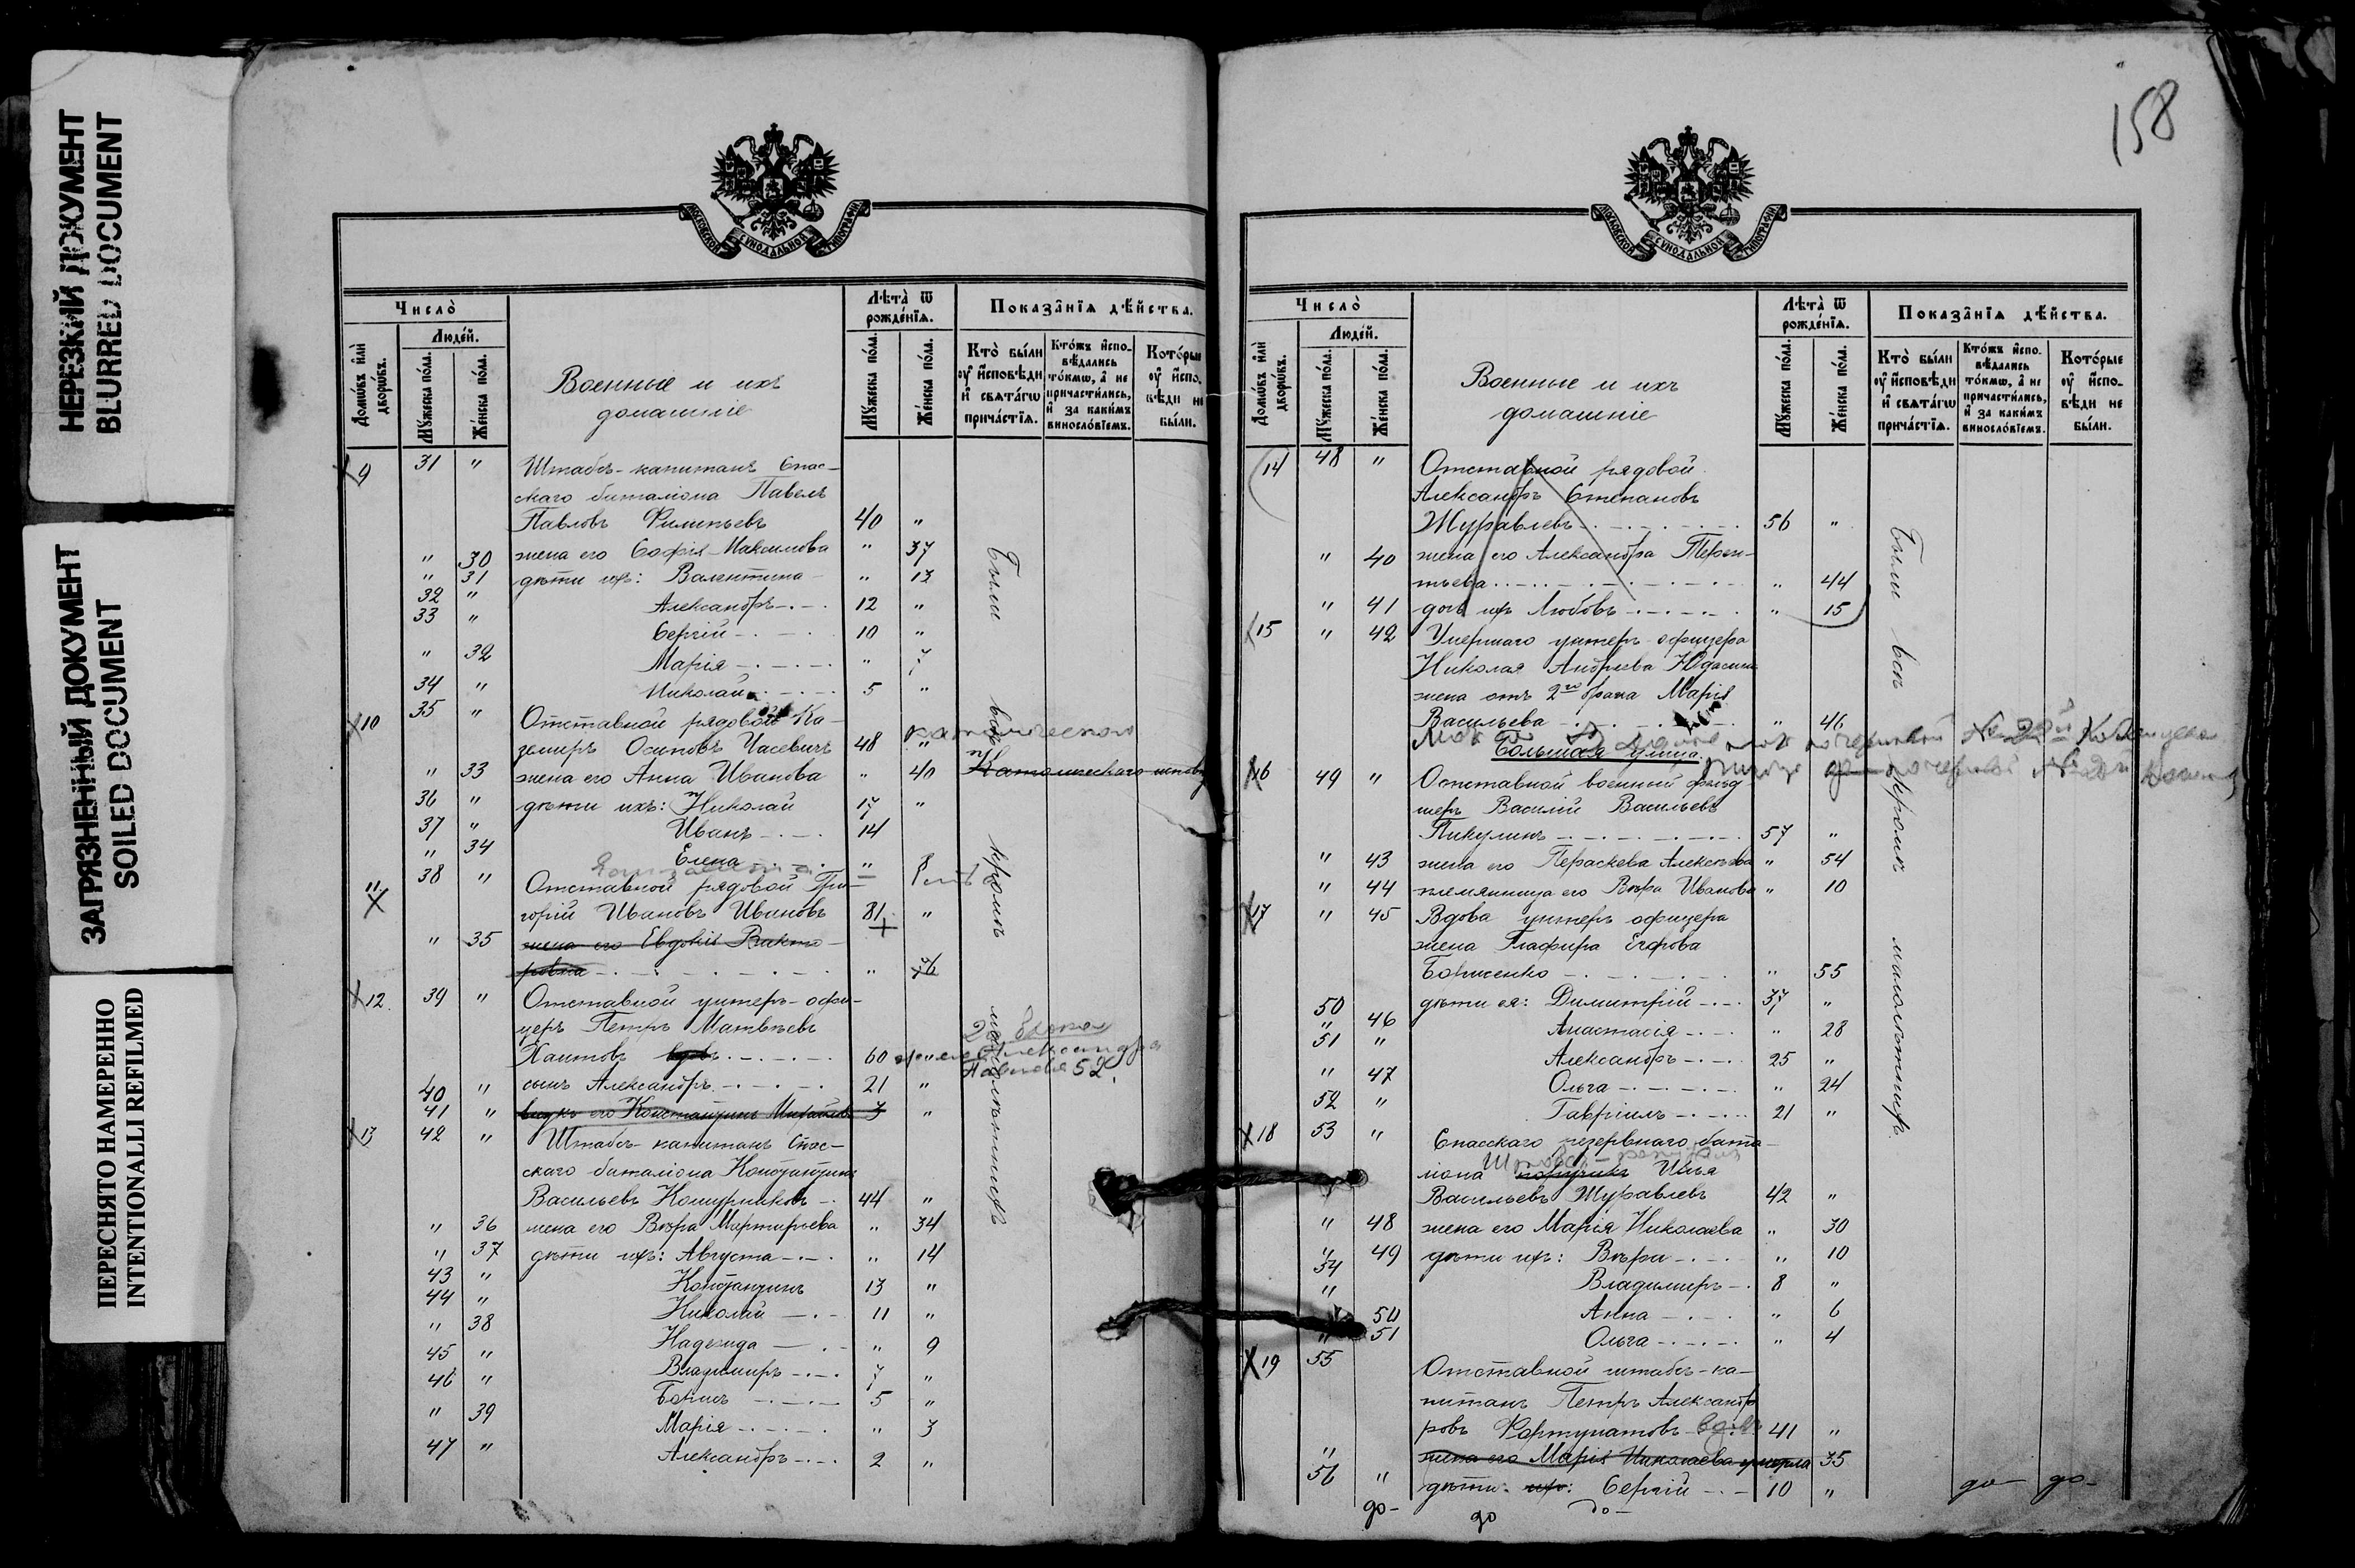 НЕРЕЗКИЙ ДОКУМЕНТ
BLURRED DOCUMENT
ЗАГРЯЗНЕННЫЙ ДОКУМЕНТ
SOILED DOCUMENT
ПЕРЕСНЯТО НАМЕРЕННО
INTENTIONALLI REFILMED
МОСКОВСКОЙ СѴНОДАЛЬНОЙ ТИПОГРАФІИ
Число̀
Люде́й.
Домѡ́въ и҆лѝ дворѡ́въ.
Мꙋ́жеска по́ла.
Же́нска по́ла.
Военные и ихъ
домашніе
Лѣта̀ ѿ рожде́нїѧ.
Мꙋ́жеска по́ла.
Же́нска по́ла.
Показа̑нїѧ дѣ́йства.
Кто̀ бы́ли ᲂу҆ и҆́сповѣди и҆ свѧта́гѡ прича́стїѧ.
Кто́жъ и҆спо­вѣ́дались то́кмѡ, а҆ не причасти́лись, и҆ за каки́мъ винословїемъ.
Кото́рые ᲂу҆ и҆́спо­вѣди не бы́ли.
9 31 " Штабсъ-капитанъ Спас-
скаго баталіона Павелъ
Павловъ Филипьевъ 40 "
" 30 жена его Софія Максимова " 37
" 31 дѣти ихъ: Валентина " 13
32 " Александръ 12 "
33 " Сергій 10 "
" 32 Марія " 7
34 " Николай 5 "
10 35 " Отставной рядовой Ка-
зимиръ Осиповъ Часевичъ 48 " католическаго
" 33 жена его Анна Иванова " 40 Католическаго
36 " дѣти ихъ: Николай 17 "
37 " Иванъ 14
" 34 Елена " 8
11 38 " Отставной рядовой Гри-
горій Ивановъ Ивановъ 81 "
" 35 жена его Евдокія Викто-
рова " 76
12 39 " Отставной унтеръ-офи-
церъ Петръ Матвѣевъ
Хаитовъ вдовъ 60 " жена Александра
Павлова 52
40 " сынъ Александръ 21 "
41 " внукъ его Константинъ Михайловъ 3 "
13 42 " Штабсъ-капитанъ Спас-
скаго баталіона Константинъ
Васильевъ Кошурниковъ 44 "
" 36 жена его Вѣра Мартирьева " 34
" 37 дѣти ихъ: Августа " 14
43 " Константинъ 13 "
44 " Николай 11 "
" 38 Надежда " 9
45 " Владимиръ 7 "
46 " Борисъ 5 "
" 39 Марія " 3
47 " Александръ 2 "
Были всѣ кромѣ малолѣтнихъ
158
МОСКОВСКОЙ СѴНОДАЛЬНОЙ ТИПОГРАФІИ
Число̀
Люде́й.
Домѡ́въ и҆лѝ дворѡ́въ.
Мꙋ́жеска по́ла.
Же́нска по́ла.
Военные и ихъ
домашніе
Лѣта̀ ѿ рожде́нїѧ.
Мꙋ́жеска по́ла.
Же́нска по́ла.
Показа̑нїѧ дѣ́йства.
Кто̀ бы́ли ᲂу҆ и҆́сповѣди и҆ свѧта́гѡ прича́стїѧ.
Кто́жъ и҆спо­вѣ́дались то́кмѡ, а҆ не причасти́лись, и҆ за каки́мъ винословїемъ.
Кото́рые ᲂу҆ и҆́спо­вѣди не бы́ли.
14 48 " Отставной рядовой
Александръ Степановъ
Журавлевъ 56 "
" 40 жена его Александра Терен-
тьева " 44
" 41 дочь ихъ Любовь " 15
15 " 42 Умершаго унтеръ-офицера
Николая Андреева
жена отъ 2го брака Марія
Васильева " 46
Большая улица.
16 49 " Отставной военный фельд-
шеръ Василій Васильевъ
Пикулинъ 57 "
" 43 жена его Параскева Алексѣева " 54
" 44 племянница его Вѣра Иванова " 10
17 " 45 Вдова унтеръ офицера
жена Глафира Егорова
Борисенко " 55
50 дѣти ея: Димитрій 37 "
" 46 Анастасія " 28
51 " Александръ 25 "
" 47 Ольга " 24
52 " Гавріилъ 21 "
18 53 " Спасскаго резервнаго бата-
Штабсъ-капитанъ
ліона поручикъ Илья
Васильевъ Журавлевъ 42 "
" 48 жена его Марія Николаева " 30
" 49 дѣти ихъ: Вѣра " 10
54 " Владимиръ 8 "
" 50 Анна " 6
" 51 Ольга " 4
19 55 Отставной штабсъ-ка-
питанъ Петръ Александ-
ровъ Фортунатовъ вдовъ 41 "
" жена его Марія Николаева умерла 35
56 " дѣти ихъ: Сергій 10 "
до- до до- до- до-
Были всѣ кромѣ малолѣтнихъ